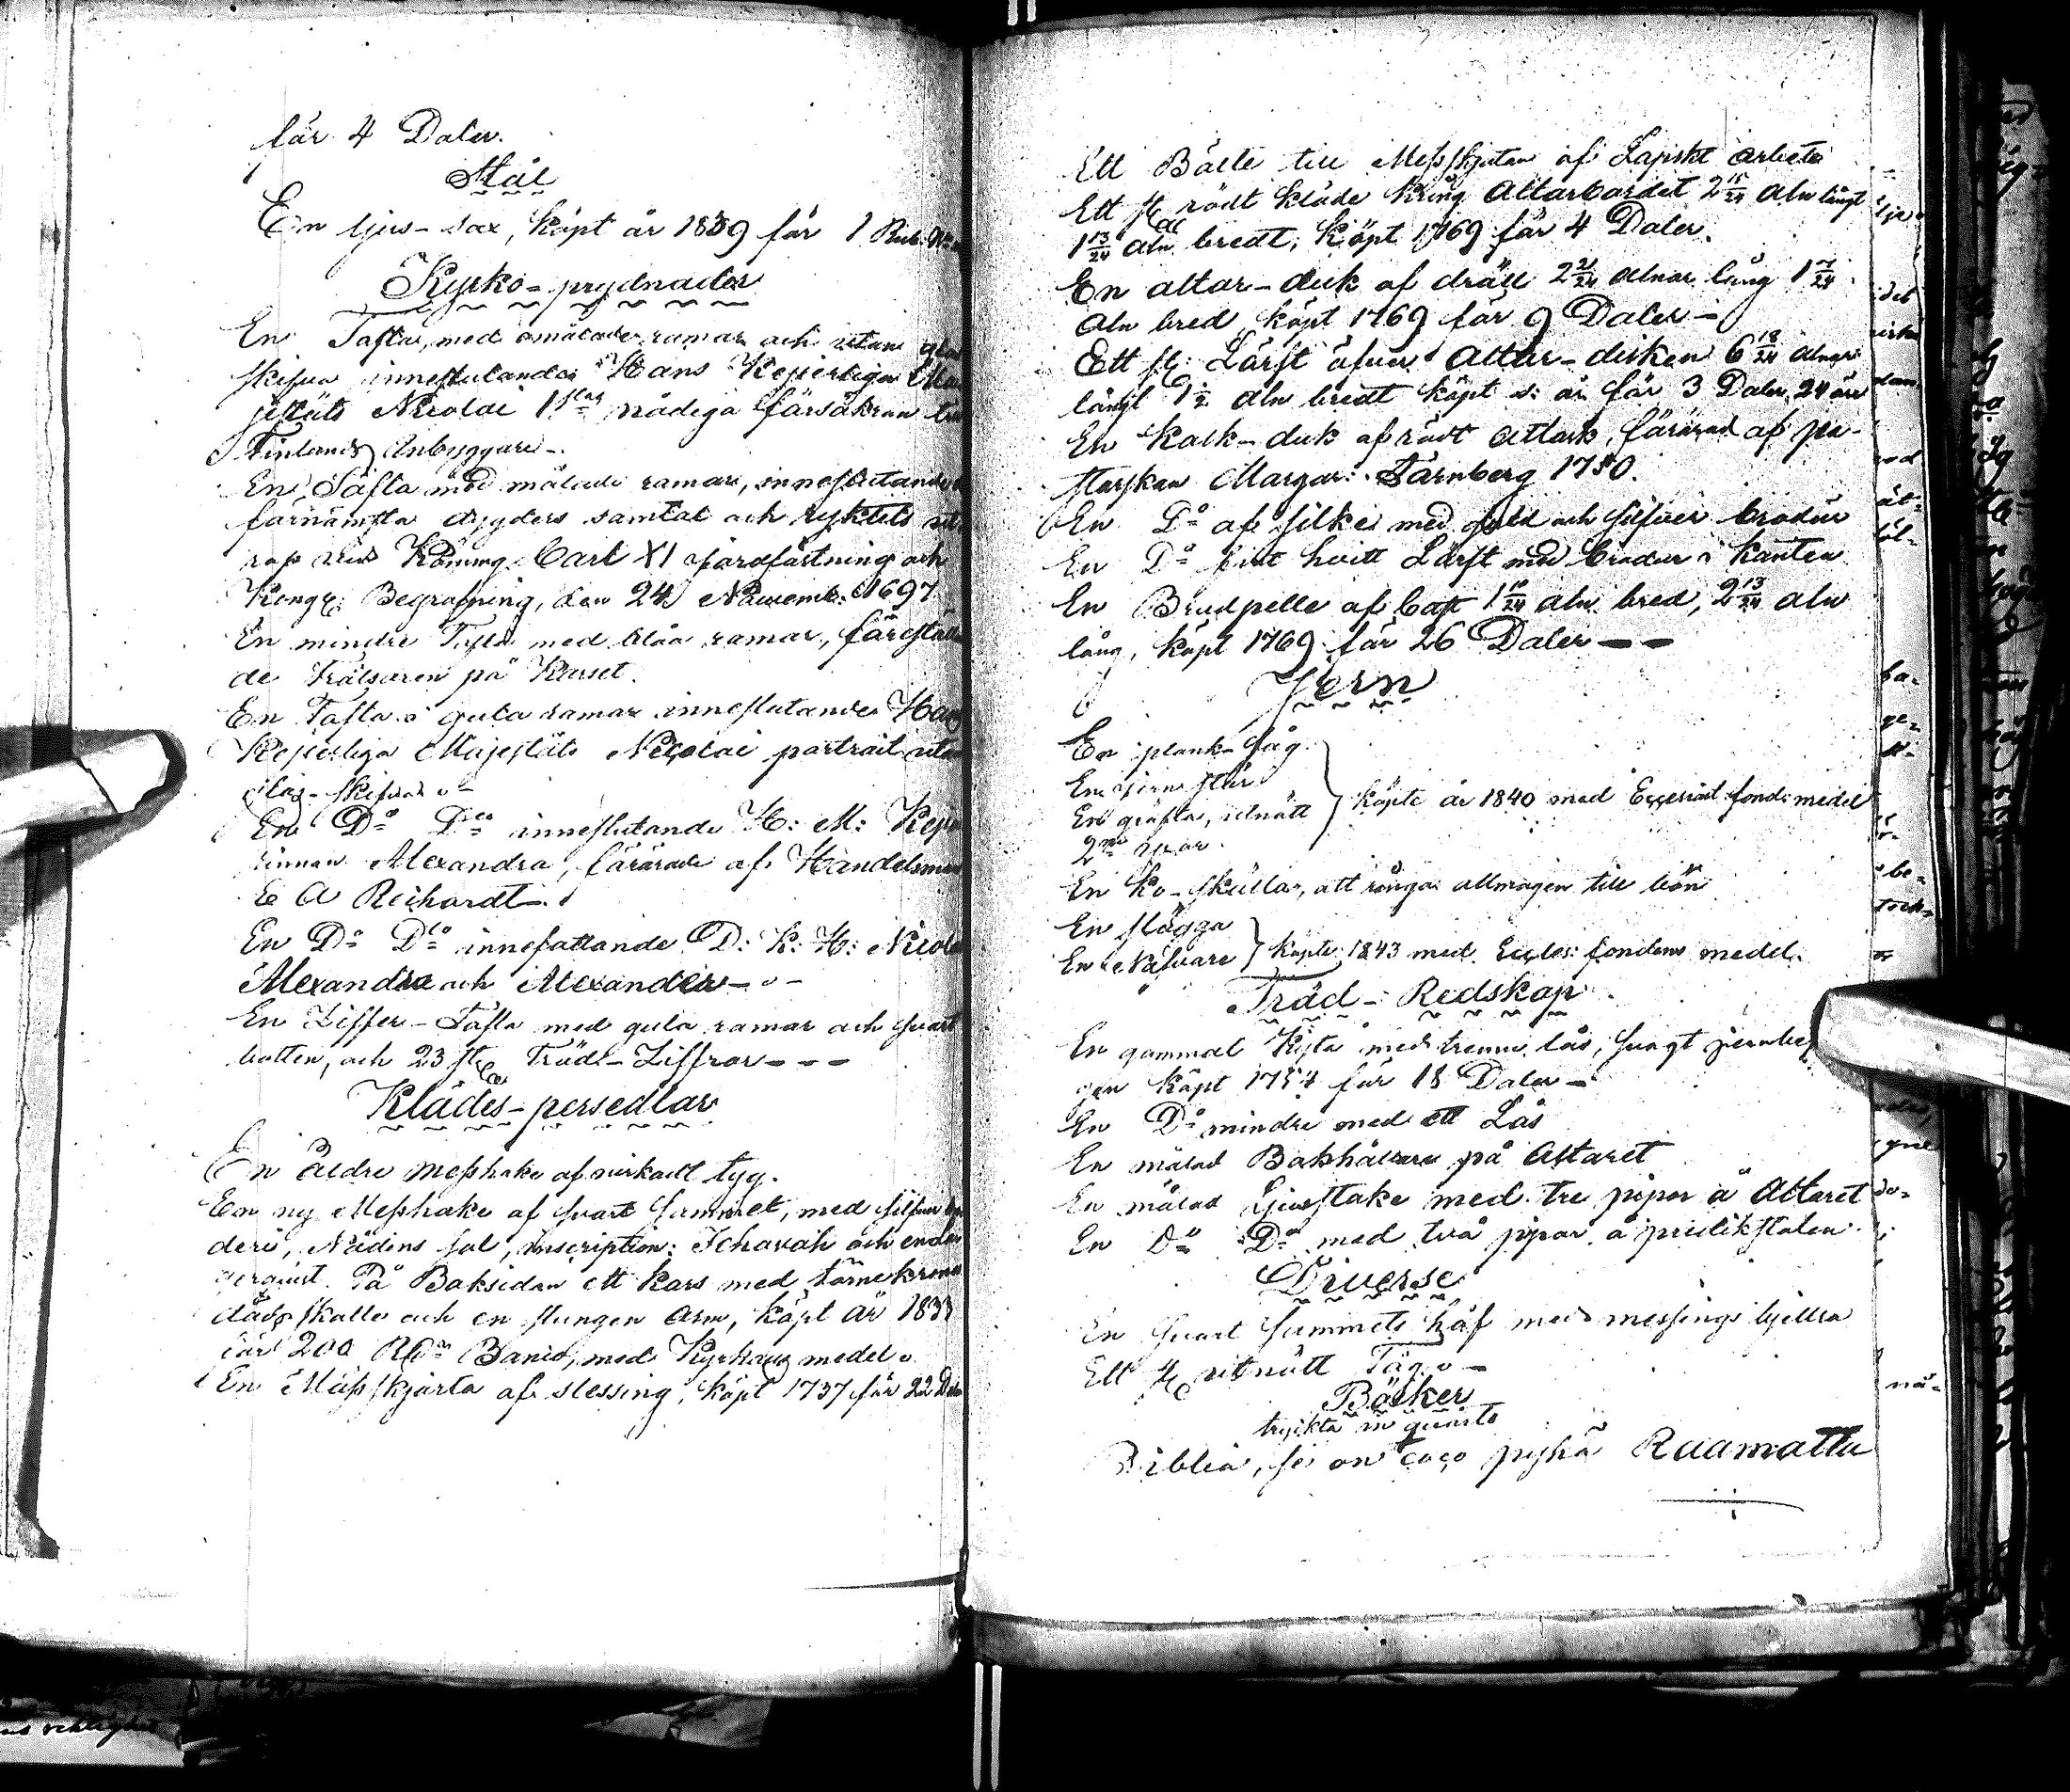 för 4 Daler.
Stål
En ljus-sax, köpt år 1839 för 1 Rub.
Kyrko-prydnader
En Tafla, med omålade ramar och utan glas
skifva inneslutande Hans Kejserliga Ma
jestäts Nicolai 1sta nådiga försäkran
Finlands Inbyggare-.
En Tafla med målade ramar, inneslutande
förnämsta dygders samtal och ryktets ut
rop vid Konung Carl XI jordfästning och
Kongl: Begrafning, den 24 Novemb: 1697
En mindre Tafla med blåa ramar, förestäl
de Frälsaren på Korset.
En Tafla i gula ramar inneslutande Hans
Kejserliga Majestäts Nicolai portrait utan
glas-skifva
En Do Dto inneslutande H: M: Kejs
rinnan Alexandra, förärade af Handelsman
E A Reihardt-.
En Do Dto innefattande D: K: H: Nicola
Alexandra och Alexander-
En Ziffer-Tafla med gula ramar och svart
botten, och 23 st Träd-Ziffror---
Klädes-persedlar
En äldre messhake af virkadt tyg.
En ny Messhake af svart sammet, med silfver
deri, Nådens sol, Inscription: Jehovah och
På Baksidan ett kors med törnekrona
dödsskalle och en slungen Orm, köpt år 1833
för 200 R Banco, med Kyrkans medel.
En Mässskjorta af slessing, köpt 1737 för 22 Dal
Ett Bälte till Messskjortan af Lapskt arbete
Ett st rödt kläde kring Altarbordet 2 15/24 aln långt
1 13/24 aln bredt, Köpt 1769 för 4 Daler.
En altar-duk af dräll 2 21/24 alnar lång 1 7/24
aln bred köpt 1769 för 9 Daler-
Ett st Lärft öfver Altar-disken 6 18/24 alnar
långt 1 1/2 aln bredt köpt s: år för 3 Daler 24 öre
En Kalk-duk af rödt Atlask, förärad af pa-
storskan Margar: Tärnberg 1750.
En Do af silke med guld och silfver brodur
En Do fint hvitt Lärft med brodur i kanten
En Brudpelle af Caft 1 10/24 aln bred, 2 13/24 aln
lång, köpt 1769 för 26 Daler--
Jern
En plank-såg
En jern stör
En gräfta, utnött
2ne
köpte år 1840 med Ecclesiast fond: medel
En Ko-skälla, att ringa allmogen till bön
En slägga
En Nafvare
köpte 1843 med Eccles: fondens medel.
Träd-Redskap
En gammal Kista med trenne lås, svagt jernbesl
gen köpt 1754 för 18 Daler-
En Do mindre med ett Lås
En målad Bokhållare på Altaret
En målad Ljusstake med tre pipor å Altaret
En Do Do med två pipor å predikstolen
Diverse
En svart sammets håf med messings bjellra
Ett st utnött Tåg
Böcker
tryckta in quarto
Biblia, se on coco pyhä Raamattu